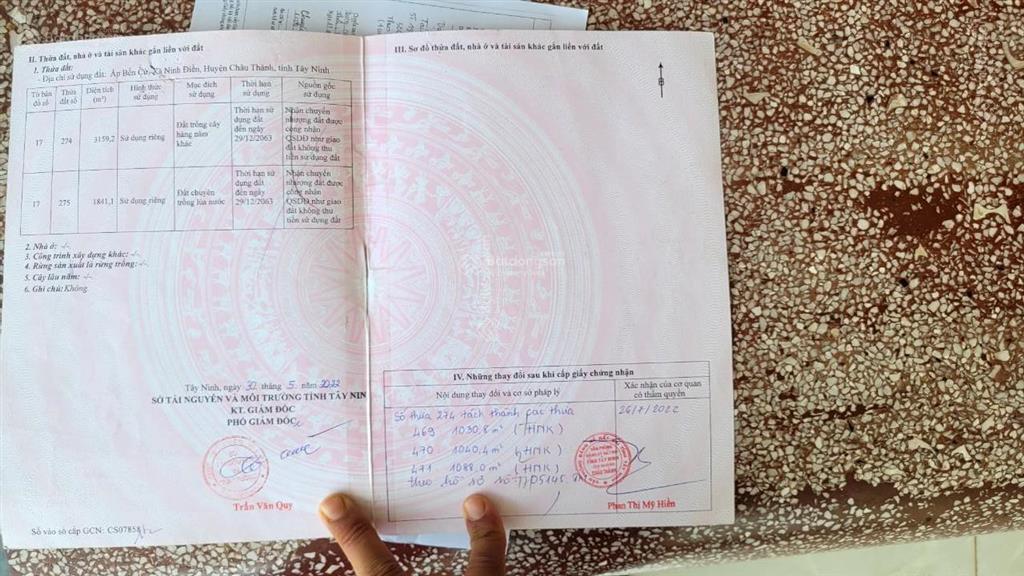 II. Thửa đất, nhà ở và tài sản khác gắn liền với đất
1. Thửa đất:
- Địa chỉ sử dụng đất: Ấp Bến Cừ, Xã Ninh Điền, Huyện Châu Thành, tỉnh Tây Ninh
Tờ bản đồ số Thửa đất số Diện tích (m²) Hình thức sử dụng Mục đích sử dụng Thời hạn sử dụng Nguồn gốc sử dụng
17 274 3159,2 Sử dụng riêng Đất trồng cây hàng năm khác Thời hạn sử dụng đất đến ngày 29/12/2063 Nhận chuyển nhượng đất được công nhận QSDĐ như giao đất không thu tiền sử dụng đất
17 275 1841,1 Sử dụng riêng Đất chuyên trồng lúa nước Thời hạn sử dụng đất đến ngày 29/12/2063 Nhận chuyển nhượng đất được công nhận QSDĐ như giao đất không thu tiền sử dụng đất
2. Nhà ở: -/-
3. Công trình xây dựng khác: -/-
4. Rừng sản xuất là rừng trồng: -/-
5. Cây lâu năm: -/-
6. Ghi chú: Không.
Tây Ninh, ngày 30 tháng 5 năm 2022
SỞ TÀI NGUYÊN VÀ MÔI TRƯỜNG TỈNH TÂY NIN
KT. GIÁM ĐỐC
PHÓ GIÁM ĐỐC
Trần Văn Quy
Số vào sổ cấp GCN: CS0785
III. Sơ đồ thửa đất, nhà ở và tài sản khác gắn liền với đất
Batdongsan
IV. Những thay đổi sau khi cấp giấy chứng nhận
Nội dung thay đổi và cơ sở pháp lý
Xác nhận của cơ quan có thẩm quyền
Số thửa 274 tách thành các thửa
26/7/2022
469 1030,8 m² (HNK)
470 1040,4 m² (HNK)
471 1088,0 m² (HNK)
theo hồ sơ số
Phan Thị Mỹ Hiền